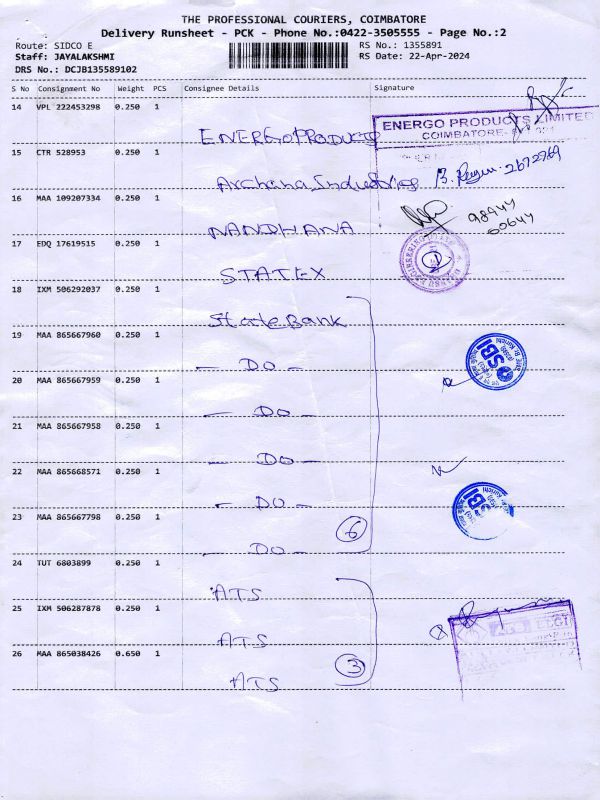 THE PROFESSIONAL COURIERS, COIMBATORE
Delivery Runsheet - PCK - Phone No.:0422-3505555 - Page No.:2
Route: SIDCO E
RS No.: 1355891
Staff: JAYALAKSHMI
RS Date: 22-Apr-2024
DRS No.: DCJB135589102
S No Consignment No Weight PCS Consignee Details Signature
14 VPL 222453298 0.250 1
ENERGO PRODUCTS
ENERGO PRODUCTS LIMITED
COIMBATORE-
15 CTR 528953 0.250 1
Archana Industries
2672969
16 MAA 109207334 0.250 1
NANDHANA
98944
00644
17 EDQ 17619515 0.250 1
STATEX
18 IXM 506292037 0.250 1
State Bank
19 MAA 865667960 0.250 1
- DO -
SBI
20 MAA 865667959 0.250 1
- DO -
21 MAA 865667958 0.250 1
- DO -
22 MAA 865668571 0.250 1
- DO -
23 MAA 865667798 0.250 1
- DO -
6
24 TUT 6803899 0.250 1
ATS
25 IXM 506287878 0.250 1
ATS
26 MAA 865038426 0.650 1
ATS
3